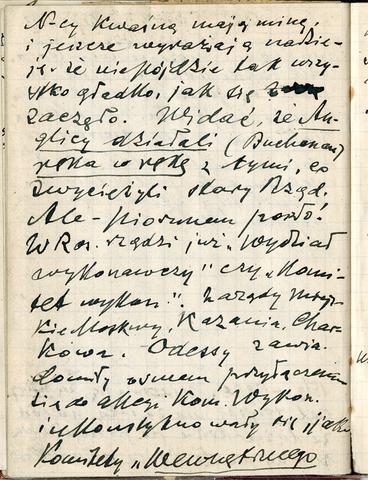 N-cy kwaśną mają minę,
i jeszcze wyrażają nadzie-
ję że nie pójdzie tak wszy-
stko gładko, jak się
zaczęło. Widać, że An-
glicy działali (Buchanan)
ręka w rękę z tymi, co
zwyciężyli stary Rząd.
Ale - piorunem poszło!
W Ros. rządzi już „Wydział
wykonawczy" czy „Komi-
tet wykon.". Zarządy
Kie Moskwy, Kazania, Char-
kowa. Odessy zawia-
domiły o swem przyłączeniu
się do akcji Kom. Wykon.
i ukonstytuowały się, jako
Komitety „Wewnętrznego